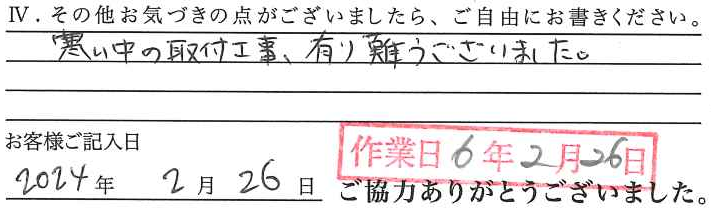 Ⅳ．その他お気づきの点がございましたら、ご自由にお書きください。
寒い中の取付工事、有り難うございました。
お客様ご記入日
作業日 6年2月26日
2024年 2月 26日
ご協力ありがとうございました。